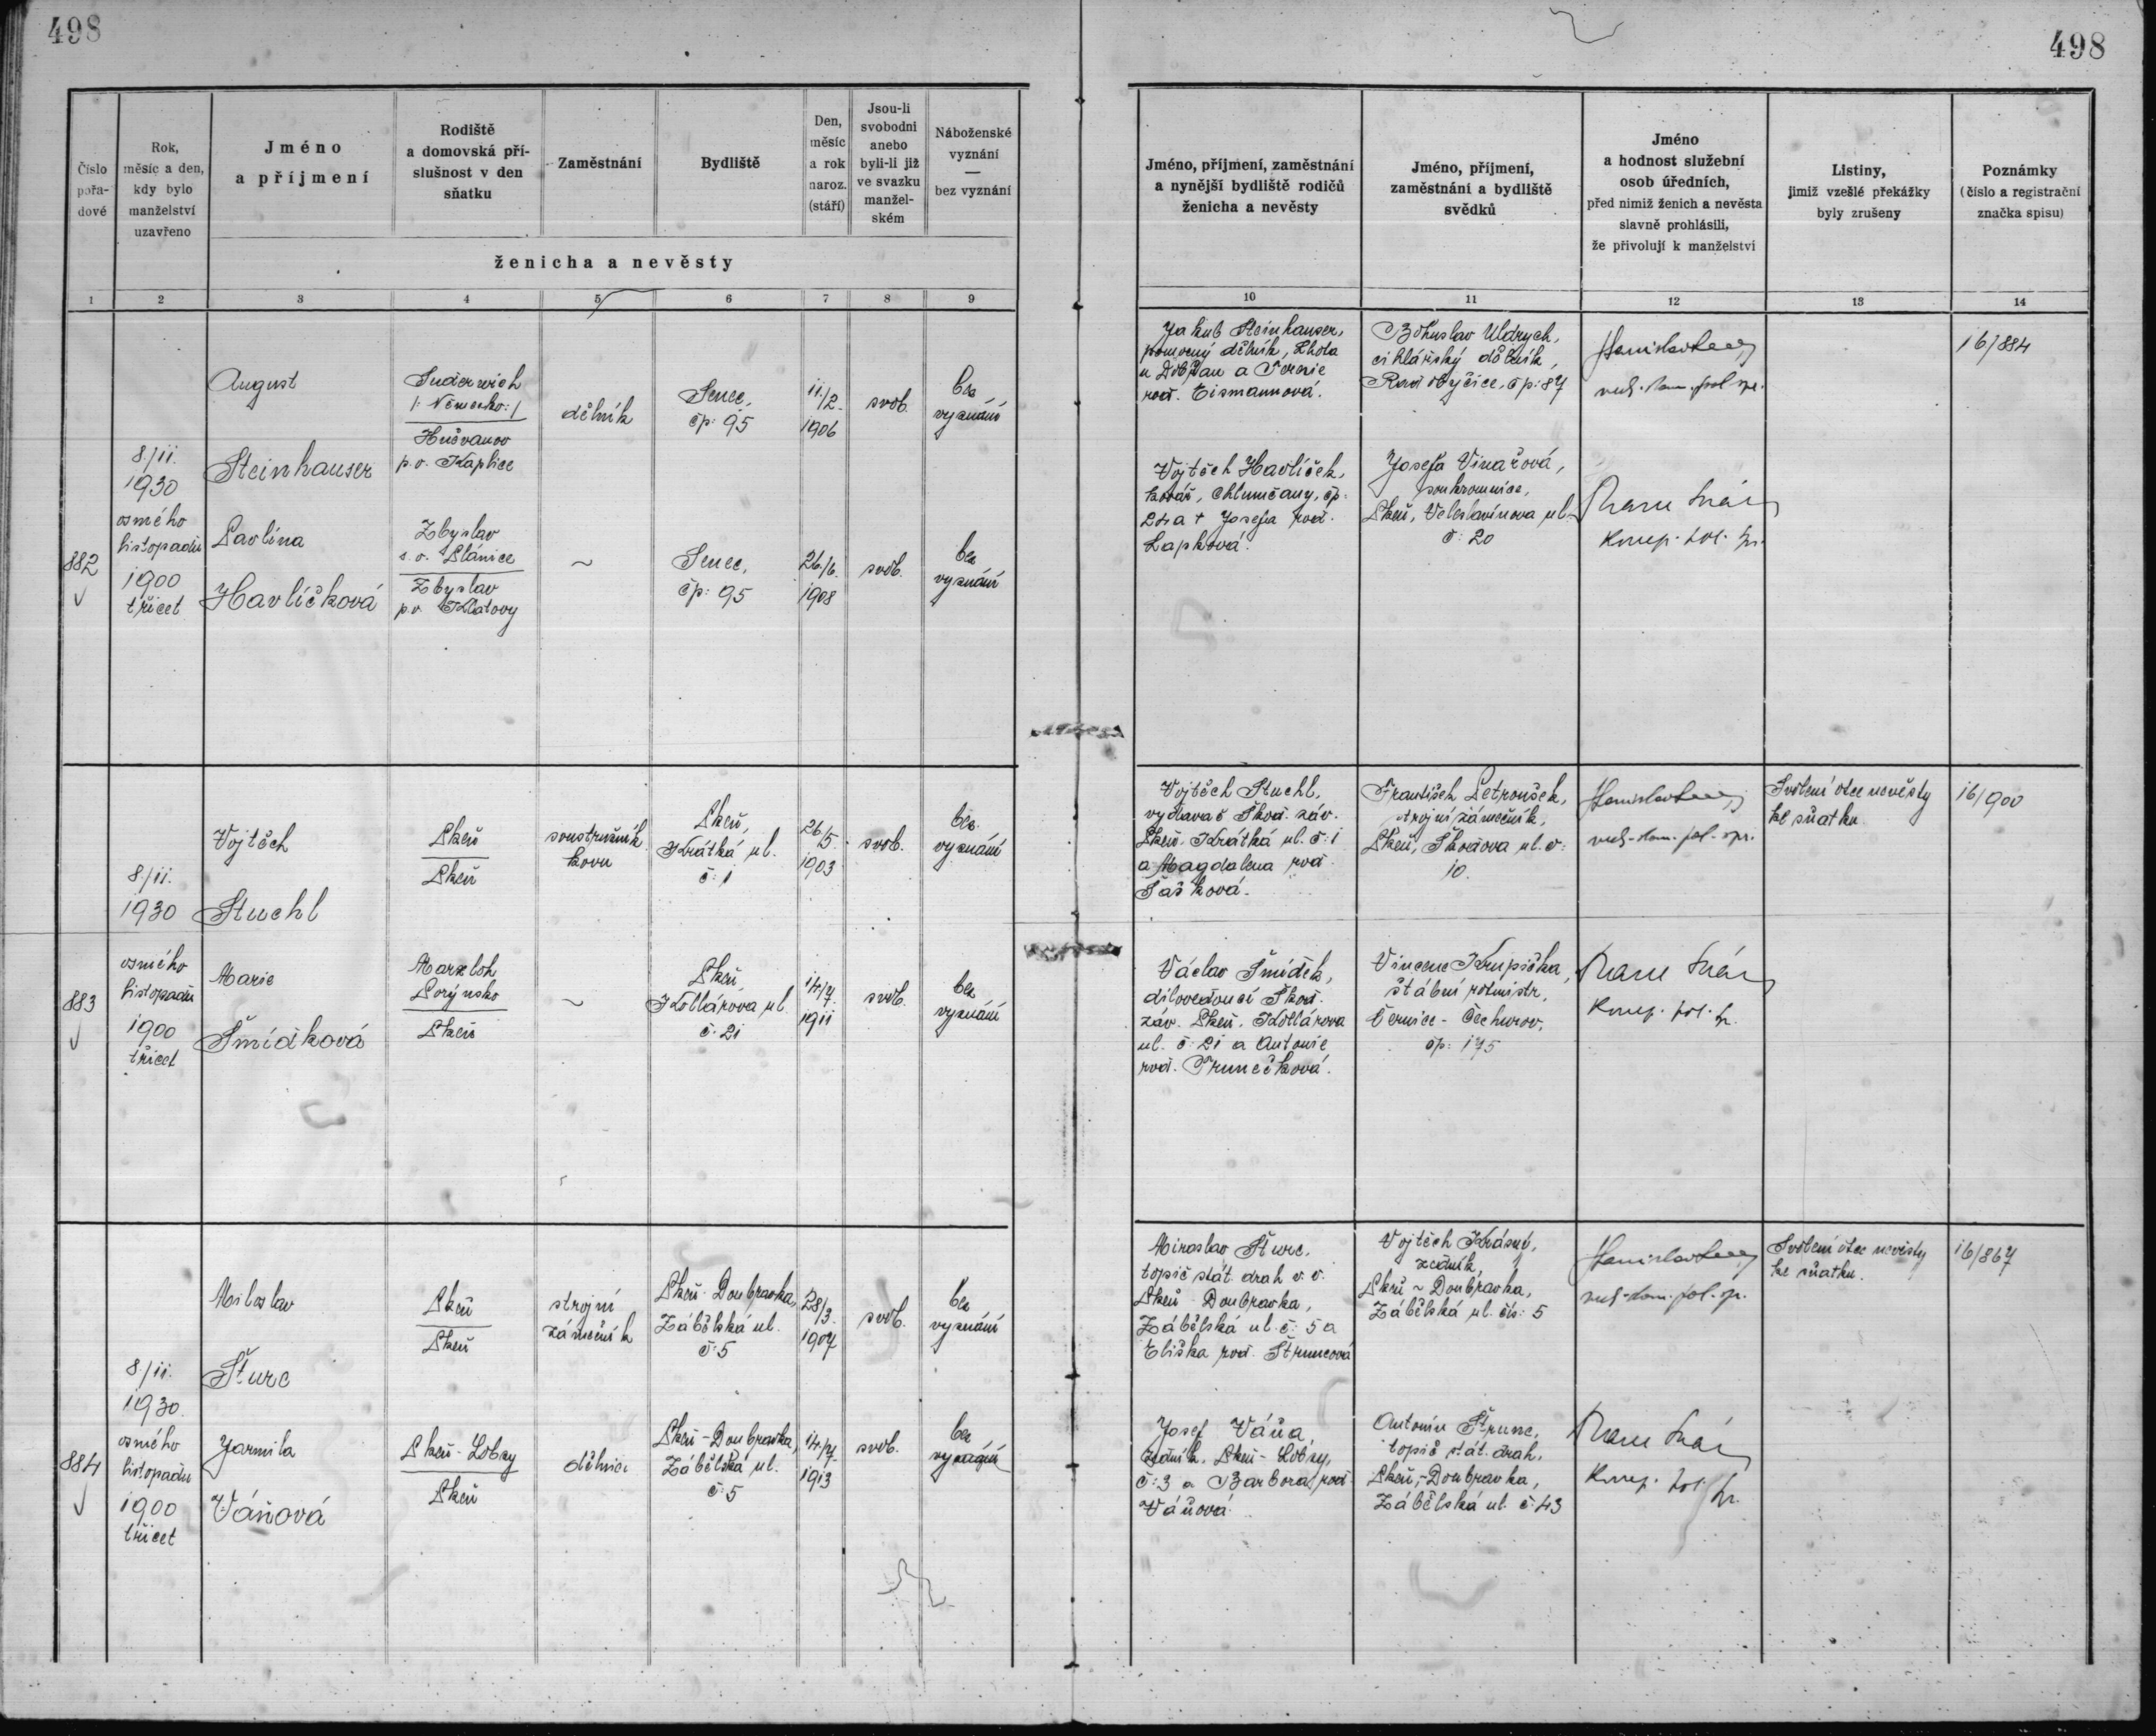 498
498
Číslo pořa- dové
Rok, měsíc a den, kdy bylo manželství uzavřeno
Jméno a příjmení
Rodiště a domovská pří- slušnost v den sňatku
Zaměstnání
Bydliště
Den, měsíc a rok naroz. (stáří)
Jsou-li svobodni anebo byli-li již ve svazku manžel- ském
Náboženské vyznání — bez vyznání
ženicha a nevěsty
Jméno, příjmení, zaměstnání a nynější bydliště rodičů ženicha a nevěsty
Jméno, příjmení, zaměstnání a bydliště svědků
Jméno a hodnost služební osob úředních, před nimiž ženich a nevěsta slavně prohlásili, že přivolují k manželství
Listiny, jimiž vzešlé překážky byly zrušeny
Poznámky (číslo a registrační značka spisu)
1 2 3 4 5 6 7 8 9 10 11 12 13 14
882
8./11.
1930
osmého
listopadu
1900
třicet
August
Steinhauser
Suderwich
/: Německo :/
p. o. Kaplice
dělník
Senec,
čp: 95
11./2.
1906
svob.
bez
vyznání
Jakub Steinhauser,
pomocný dělník, Lhota
u Dobřan a Terezie
roz. Eismannová.
Bohuslav Uldrych,
cihlářský dělník,
Radobyčice, čp: 87
16/884
Pavlína
Havlíčková
Zbyslav
s. o. Plánice
Zbyslav
p. o. Klatovy
~
Senec,
čp: 95
26./6.
1908
svob.
bez
vyznání
Vojtěch Havlíček,
kovář, Chlumčany, čp:
24 a + Josefa roz.
Lapková.
Josefa Vinařová,
soukromnice,
Plzeň, Veleslavínova ul.
č: 20
883
8./11.
1930
osmého
listopadu
1900
třicet
Vojtěch
Stuchl
Plzeň
Plzeň
soustružník
kovu
Plzeň,
Krátká ul.
č: 1
26/5.
1903
svob.
bez
vyznání
Vojtěch Stuchl,
vydavač Škod. záv.
Plzeň, Krátká ul. č: 1
a Magdalena roz.
Šašková.
František Petroušek,
strojní zámečník,
Plzeň, Škodova ul. č:
10.
Svolení otce nevěsty
ke sňatku
16/900
Marie
Šmídková
Marxloh
Porýnsko
Plzeň
~
Plzeň,
Kollárova ul.
č. 21
14/7.
1911
svob.
bez
vyznání
Václav Šmídek,
dílovedoucí Škod.
záv. Plzeň, Kollárova
ul. č: 21 a Antonie
roz. Trunečková.
Vincenc Krupička,
štábní rotmistr,
Černice - Čechurov,
čp: 175
884
8/11.
1930.
osmého
listopadu
1900
třicet
Miloslav
Šturc
Plzeň
Plzeň
strojní
zámečník
Plzeň - Doubravka,
Zábělská ul.
č: 5
28/3.
1907
svob.
bez
vyznání
Miroslav Šturc,
topič stát. drah v. v.
Plzeň - Doubravka,
Zábělská ul. č: 5 a
Eliška roz. Štruncová
Vojtěch Krásný,
zedník,
Plzeň ~ Doubravka,
Zábělská ul. čís: 5
Svolení otce nevěsty
ke sňatku.
16/867
Jarmila
Váňová
Plzeň - Lobzy
Plzeň
dělnice
Plzeň - Doubravka,
Zábělská ul.
č: 5
14/7.
1913
svob.
bez
vyznání
Josef Váňa,
zedník, Plzeň - Lobzy,
č: 3 a Barbora roz.
Váňová.
Antonín Štrunc,
topič stát. drah,
Plzeň, - Doubravka,
Zábělská ul. č: 43